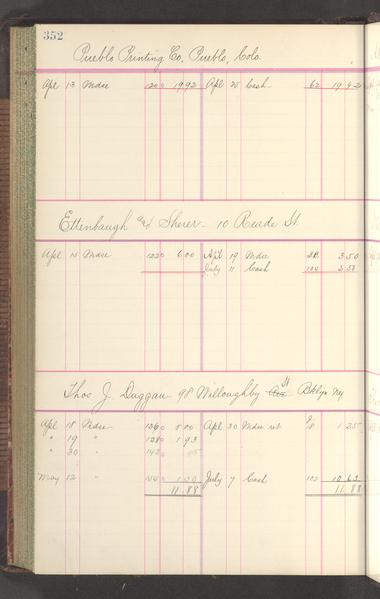 352
Pueblo Printing Co, Pueblo, Colo.
Apl 13 Mdse 1200 19 92 Apl 25 Cash 62 19 92
Ettenbaugh and Sherer - 10 Reade St.
Apl 15 Mdse 1220 6 00 Apl 19 Mdse 3 50
July 11 Cash 104 2 50
Thos J. Duggan 98 Willoughby Ave St Bklyn NY
Apl 18 Mdse 1260 8 00 Apl 30 Mdse ret 18 1 25
" 19 " 1280 1 93
" 30 " 142
May 12 " 1 00 July 7 Cash 102 10 63
11.88 11.88